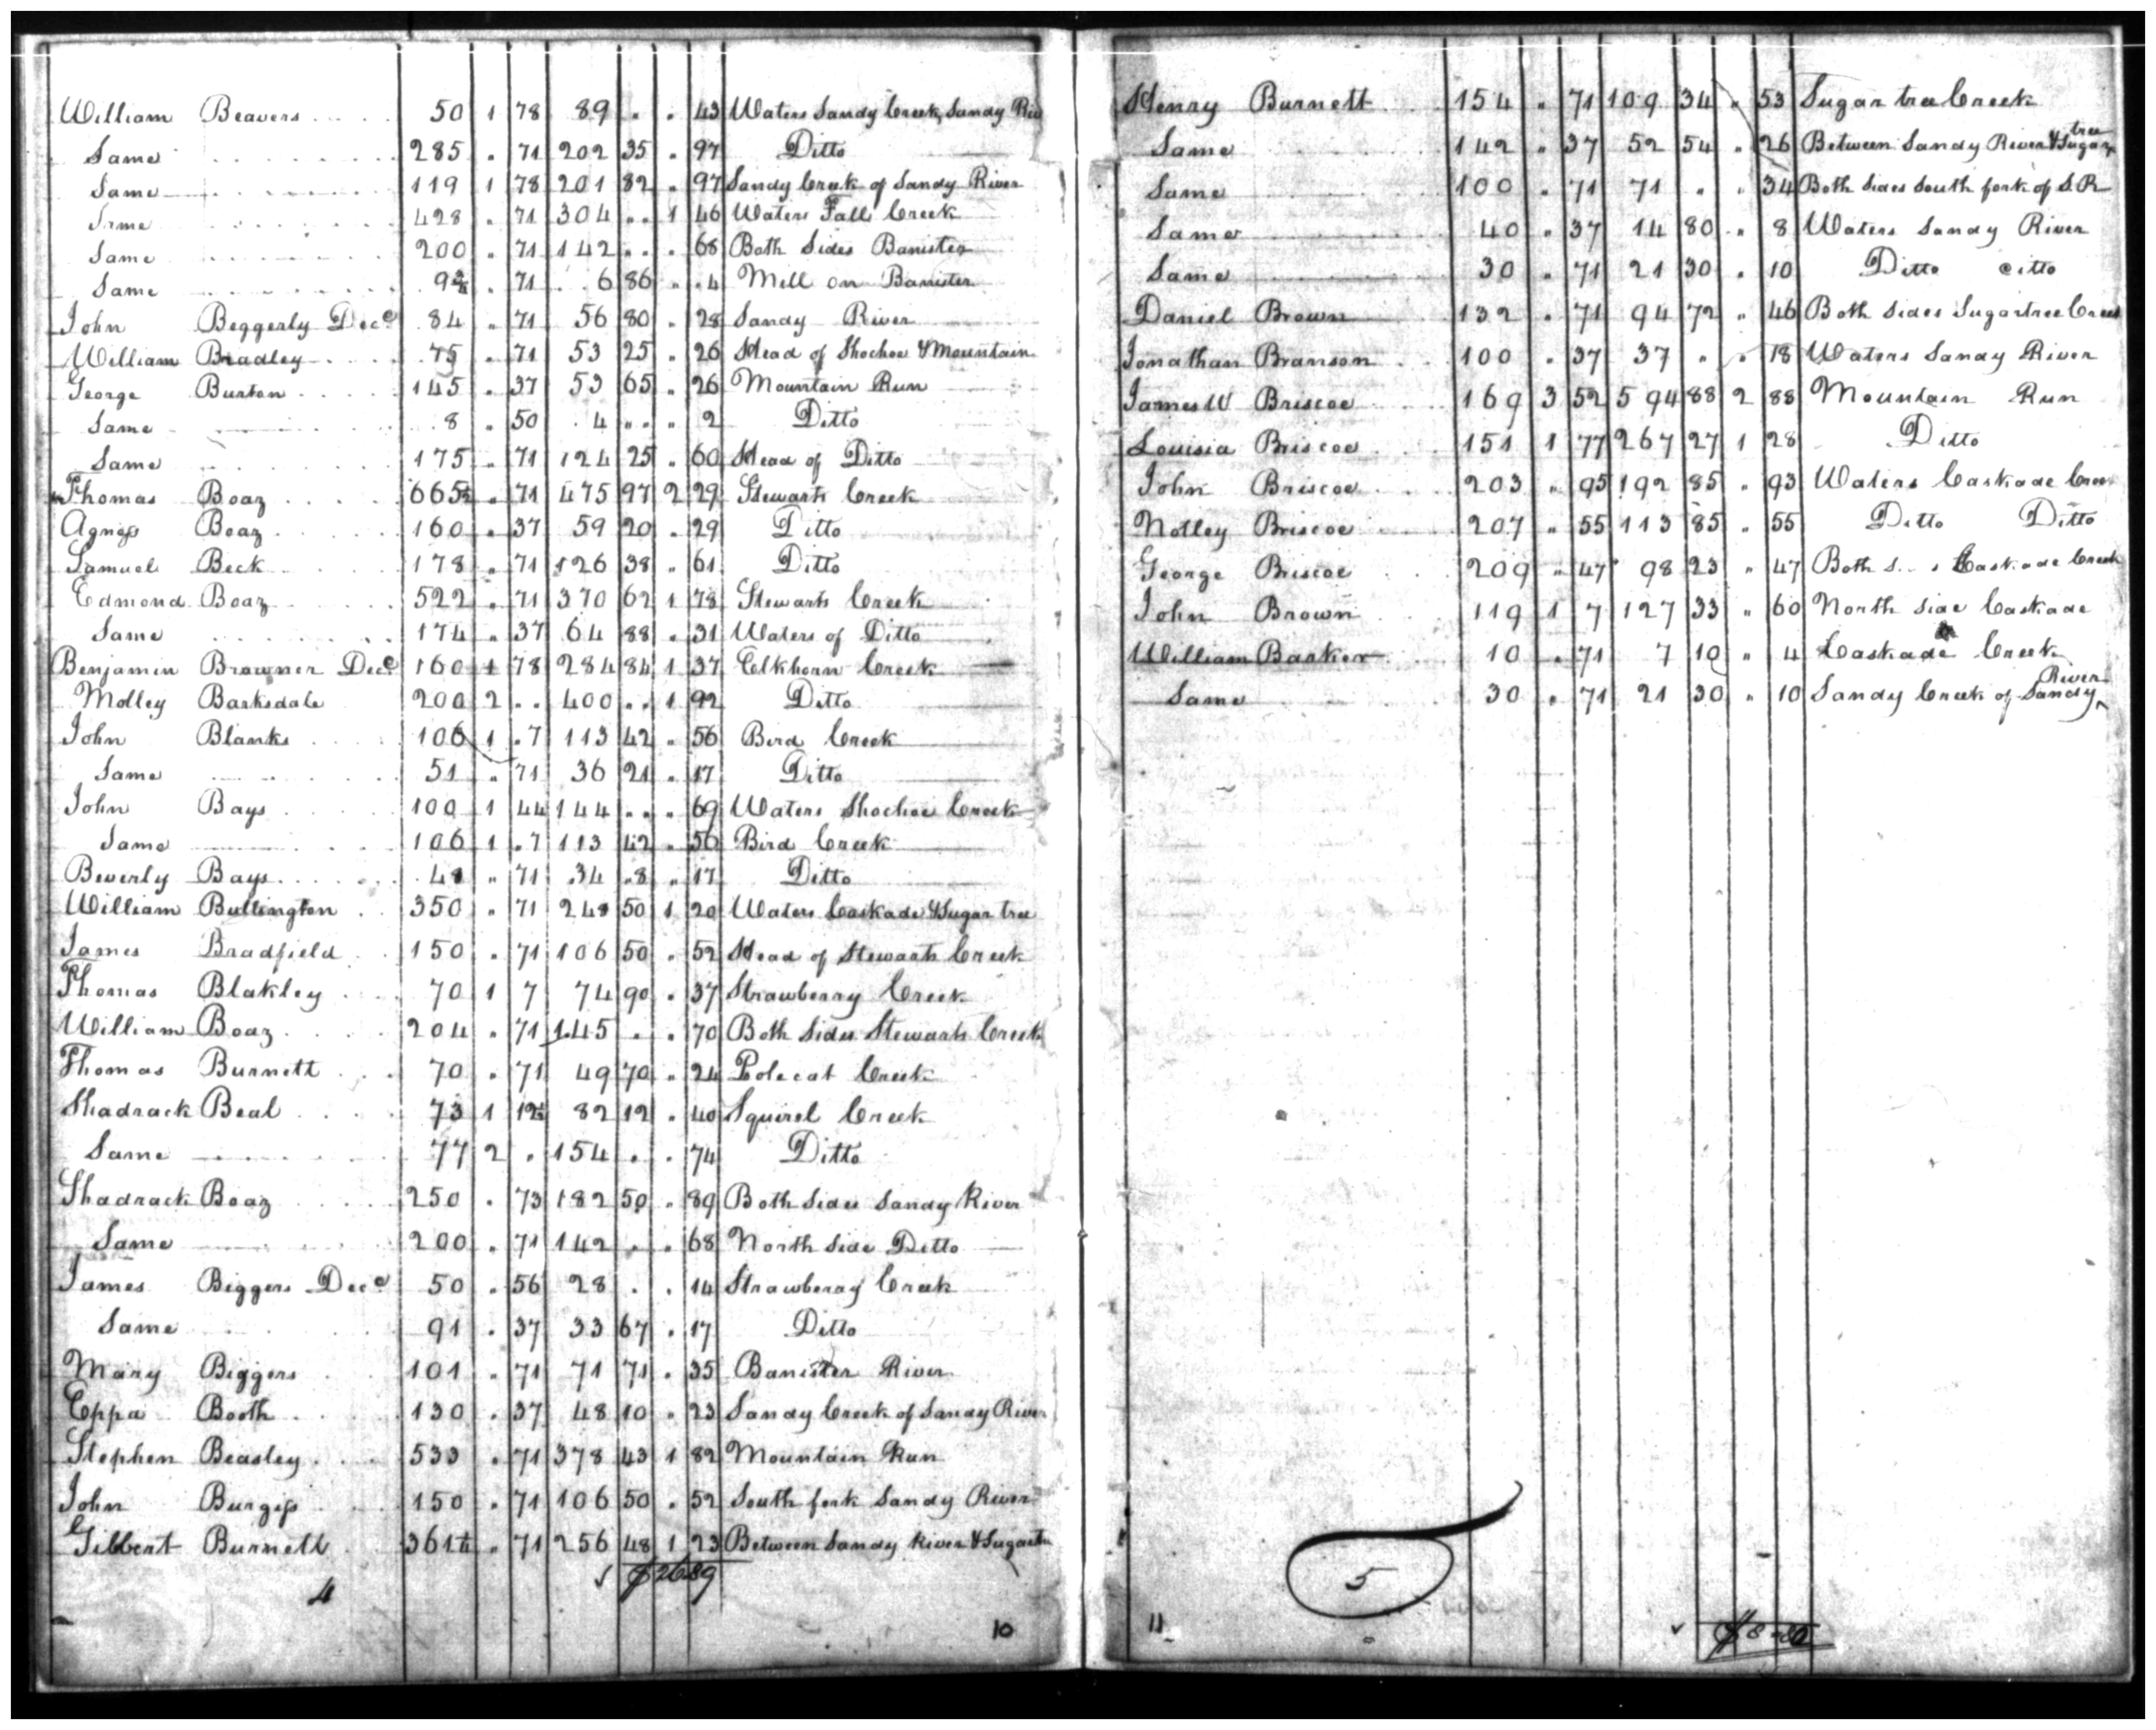 William Beavers 50 1 78 89 " " 43 Waters Sandy Creek, Sandy Riv
Same 285 " 71 202 35 " 97 Ditto
Same 119 1 78 201 82 " 97 Sandy Creek of Sandy River
Same 428 " 71 304 " " 1 46 Waters Falls Creek
Same 200 " 71 142 " " " 68 Both Sides Banister
Same 71 6 86 " 4 Mill on Banister
John Beggerly Decd 84 " 71 56 80 " 28 Sandy River
William Bradley 75 " 71 53 25 " 26 Head of Shochoe & Mountain
George Burton 145 " 37 53 65 " 26 Mountain Run
Same 8 " 50 4 " " " 2 Ditto
Same 175 " 71 124 25 " 60 Head of Ditto
Thomas Boaz 665½ " 71 475 97 2 29 Stewarts Creek
Agness Boaz 160 " 37 59 20 " 29 Ditto
Samuel Beck 178 " 71 126 38 " 61 Ditto
Edmond Boaz 522 " 71 370 62 1 78 Stewarts Creek
Same 174 " 37 64 88 " 31 Waters of Ditto
Benjamin Brawner Decd 160 1 78 284 84 1 37 Elkhorn Creek
Motley Barksdale 200 2 " " 400 " " 1 92 Ditto
John Blanks 106 1 7 113 42 " 56 Bird Creek
Same 51 " 71 36 21 " 17 Ditto
John Bays 100 1 44 144 " " " 69 Waters Shochoe Creek
Same 106 1 7 113 42 " 56 Bird Creek
Beverly Bays 48 " 71 34 8 " 17 Ditto
William Bullington 350 " 71 248 50 1 20 Waters Caskade & Sugar tree
James Bradfield 150 " 71 106 50 " 52 Head of Stewarts Creek
Thomas Blakley 70 1 7 74 90 " 37 Strawberry Creek
William Boaz 204 " 71 145 " " 70 Both Sides Stewarts Creek
Thomas Burnett 70 " 71 49 70 " 24 Polecat Creek
Shadrack Beal 73 1 12½ 82 12 " 40 Squirel Creek
Same 77 2 " 154 " " 74 Ditto
Shadrack Boaz 250 " 73 182 50 " 89 Both Sides Sandy River
Same 200 " 71 142 " " 68 North Side Ditto
James Biggers Decd 50 " 56 28 " " 14 Strawberry Creek
Same 91 " 37 33 67 " 17 Ditto
Mary Biggers 101 " 71 71 71 " 35 Banister River
Eppa Booth 130 " 37 48 10 " 23 Sandy Creek of Sandy River
Stephen Beasley 533 " 71 378 43 1 82 Mountain Run
John Burgess 150 " 71 106 50 " 52 South fork Sandy River
Gilbert Burnett 361¼ " 71 256 48 1 23 Between Sandy River & Sugartre
$ 26 89
4
10
Henry Burnett 154 " 71 109 34 " 53 Sugar tree Creek
Same 142 " 37 52 54 " 26 Between Sandy River & Sugar tree
Same 100 " 71 71 " " 34 Both Sides South fork of S R
Same 40 " 37 14 80 " 8 Waters Sandy River
Same 30 " 71 21 30 " 10 Ditto ditto
Daniel Brown 132 " 71 94 72 " 46 Both Sides Sugartree Creek
Jonathan Branson 100 " 37 37 " " 18 Waters Sandy River
James W Briscoe 169 3 52 594 88 2 88 Mountain Run
Louisia Briscoe 151 1 77 267 27 1 28 Ditto
John Briscoe 203 " 95 192 85 " 93 Waters Caskade Creek
Notley Briscoe 207 " 55 113 85 " 55 Ditto Ditto
George Briscoe 209 " 47 98 23 " 47 Both Caskade Creek
John Brown 119 1 7 127 33 " 60 North Side Caskade
William Barker 10 " 71 7 10 " 4 Caskade Creek
Same 30 " 71 21 30 " 10 Sandy Creek of Sandy River
5
11